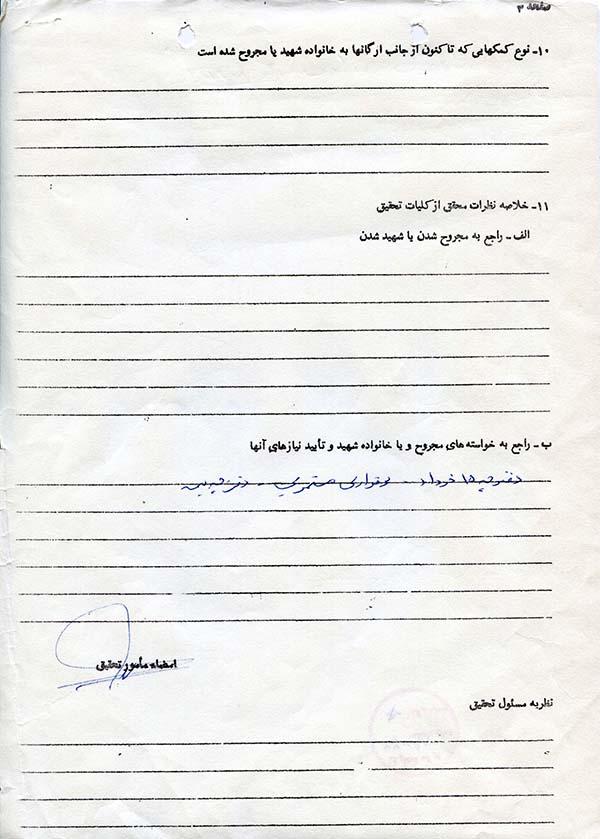 صفحه ۳
۱۰ـ نوع کمکهایی که تاکنون از جانب ارگانها به خانواده شهید یا مجروح شده است
۱۱ـ خلاصه نظرات محقق از کلیات تحقیق
الف ـ راجع به مجروح شدن یا شهید شدن
ب ـ راجع به خواسته های مجروح و یا خانواده شهید و تأیید نیازهای آنها
دفترچه ۱۵ خرداد - برقراری مستمری - دفترچه بیمه
امضاء مأمور تحقیق
نظریه مسئول تحقیق